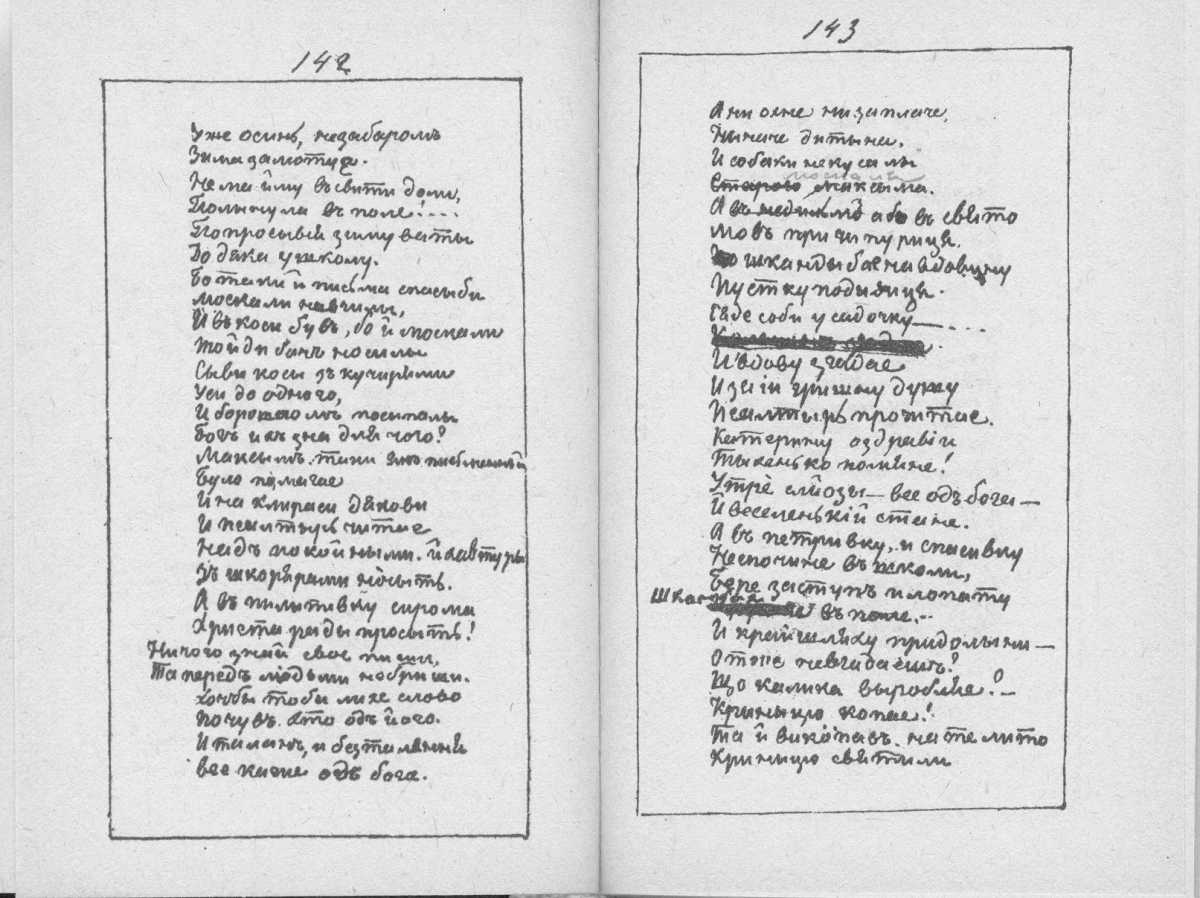 142
Уже осинь, незабаромъ
Зима замотуе.
Нема йму въ свити доли,
Полынула въ поле!....
Попросывсь зимувати
До дяка у школу.
Бо таки й письма спасыби
москали навчили,
Й въ коси бувъ, бо й москали
Тойди бачъ носили
Сыви косы зъ кучирями
Уси до одного,
И борошномъ посыпали
Богъ ихъ зна для чого?
Максымъ таки
Було помагае
И на клироси дякови
И псалтырь читае
Надъ покойными. й кавтуры
Зъ школярами носыть.
А въ пилипивку сирома
Христа ради просыть!
Ничого знай свое пиши,
Та передъ людьми не бриши.
Хочбы тоби лихе слово
Почувъ хто одъ його.
И таланъ, и безталання
все каже одъ бога.
143
А ни охне ни заплаче,
Неначе дитына.
И собаки не кусалы
Старого москаля Максыма.
А въ недилю або въ свято
мовъ причипуриця.
шкандыбае на вдовыну
Пустку подывиця.
Сяде соби у садочку—....
И вдову згадае
И за ій гришну душу
Псалтырь прочитае.
Катерину оздравіи
Тыхенько помяне!
Утре слёозы — все одъ бога —
Й веселенькій стане.
А въ петривку, и спасивку
Неспочине въ школи,
Бере заступъ и лопату
Шкандыбае въ поле...
И край шляху придолыни —
Отже невгадаешъ?
Що калика выробляе? —
Крыныцю копае!
Та й выкопавъ. на те лито
Крыныцю святили